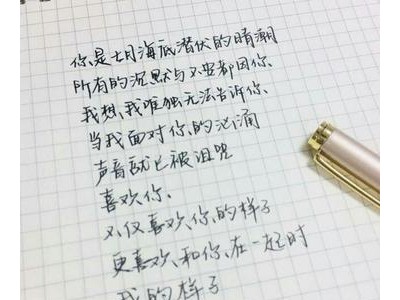 你是七月海底潜伏的暗潮
所有的沉默与不安都因你
我想、我唯独无法告诉你、
当我面对你的汹涌
声音就已被诅咒
喜欢你、
不仅喜欢你的样子
更喜欢和你在一起时
我的样子